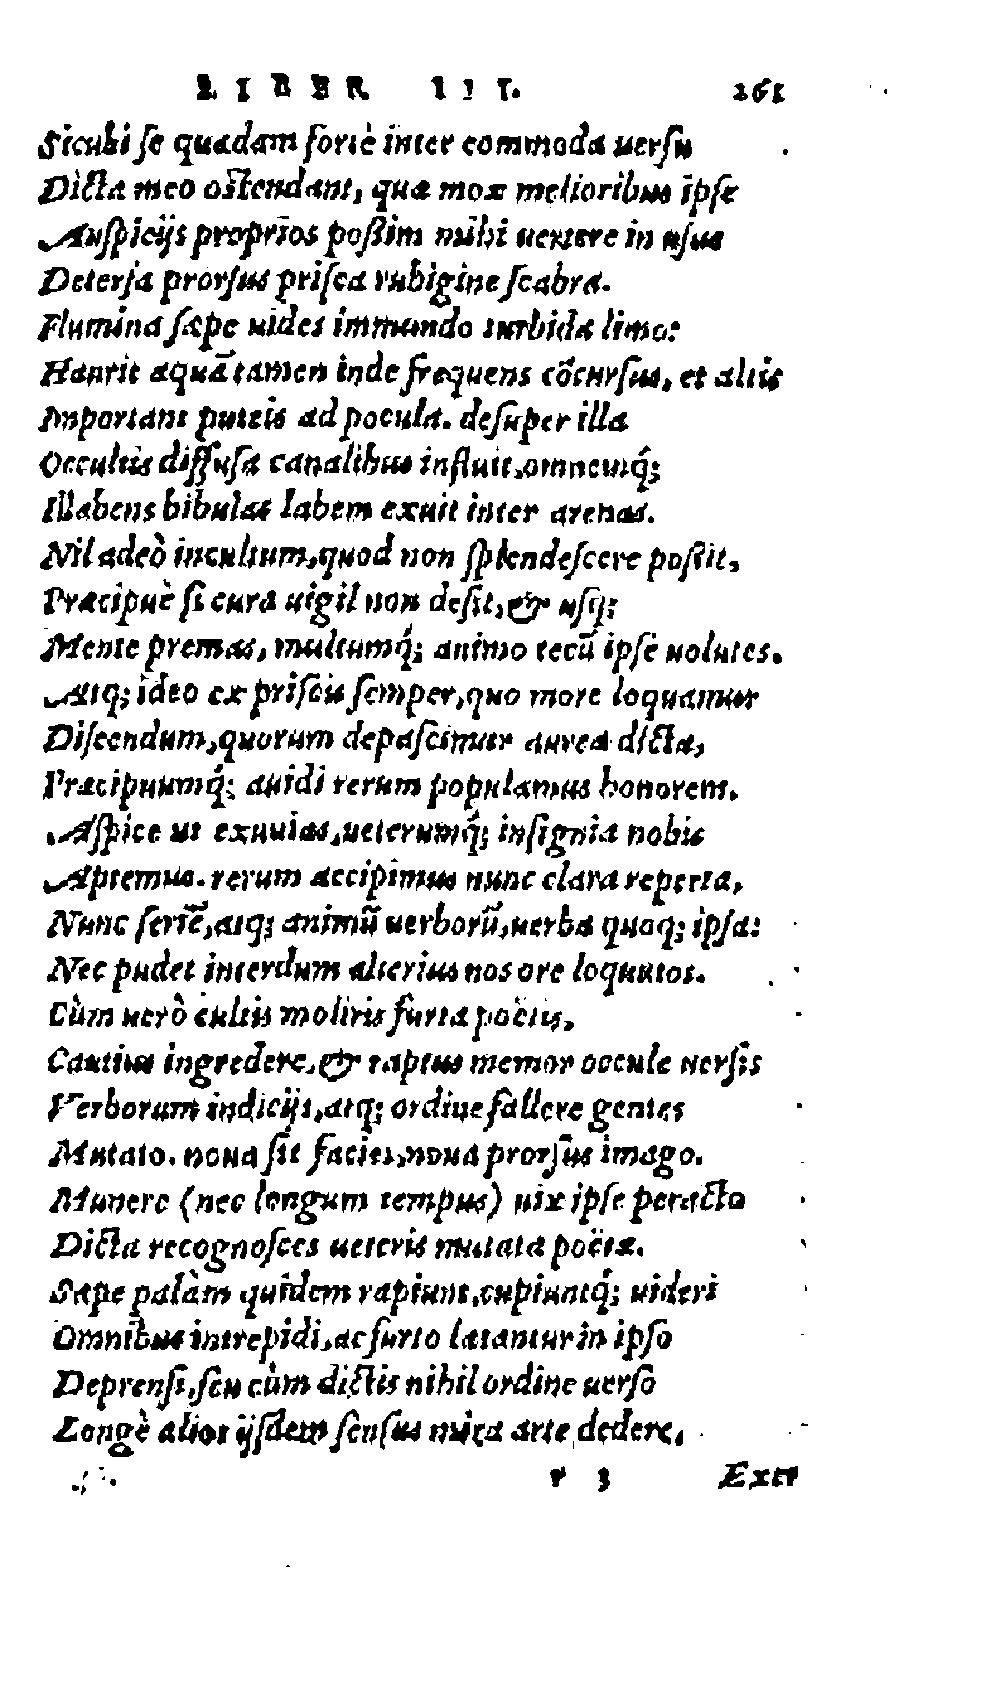 LIBER III. 261
Sicubi se quadam fortè inter commoda uersu
Dicta meo ostendant, quæ mox melioribus ipse
Auspicijs proprios possim mihi uertere in usus
Detersa prorsus prisca rubigine scabra.
Flumina sæpe uides immundo turbida limo:
Haurit aquā tamen inde frequens cōcursus, et altis
Important puteis ad pocula. desuper illa
Occultis diffusa canalibus influit, omnemq́;
Illabens bibulas labem exuit inter arenas.
Nil adeò incultum, quod non splendescere possit,
Præcipuè si cura uigil non desit, & usq;
Mente premas, multumq́; animo tecū ipse uolutes.
Atq; ideo ex priscis semper, quo more loquamur
Discendum, quorum depascimur aurea dicta,
Præcipuumq́; auidi rerum populamus honorem.
Aspice ut exuuias, ueterumq́; insignia nobis
Aptemus. rerum accipimus nunc clara reperta,
Nunc seriē, atq; animū uerborū, uerba quoq; ipsa:
Nec pudet interdum alterius nos ore loquutos.
Cùm uerò cultis moliris furta poëtis,
Cautius ingredere, & raptus memor occule uersis
Verborum indicijs, atq; ordine fallere gentes
Mutato. noua sit facies, noua prorsus imago.
Munere (nec longum tempus) uix ipse peracto
Dicta recognosces ueteris mutata poëtæ.
Sæpe palàm quidem rapiunt, cupiuntq́; uideri
Omnibus intrepidi, ac furto lætantur in ipso
Deprensi, seu cùm dictis nihil ordine uerso
Longè alios ijsdem sensus mira arte dedere,
r 3 Exu